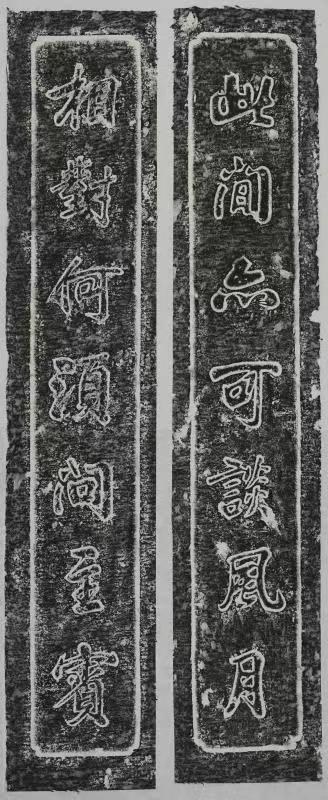 此間亦可談風月
相對何須問主賓